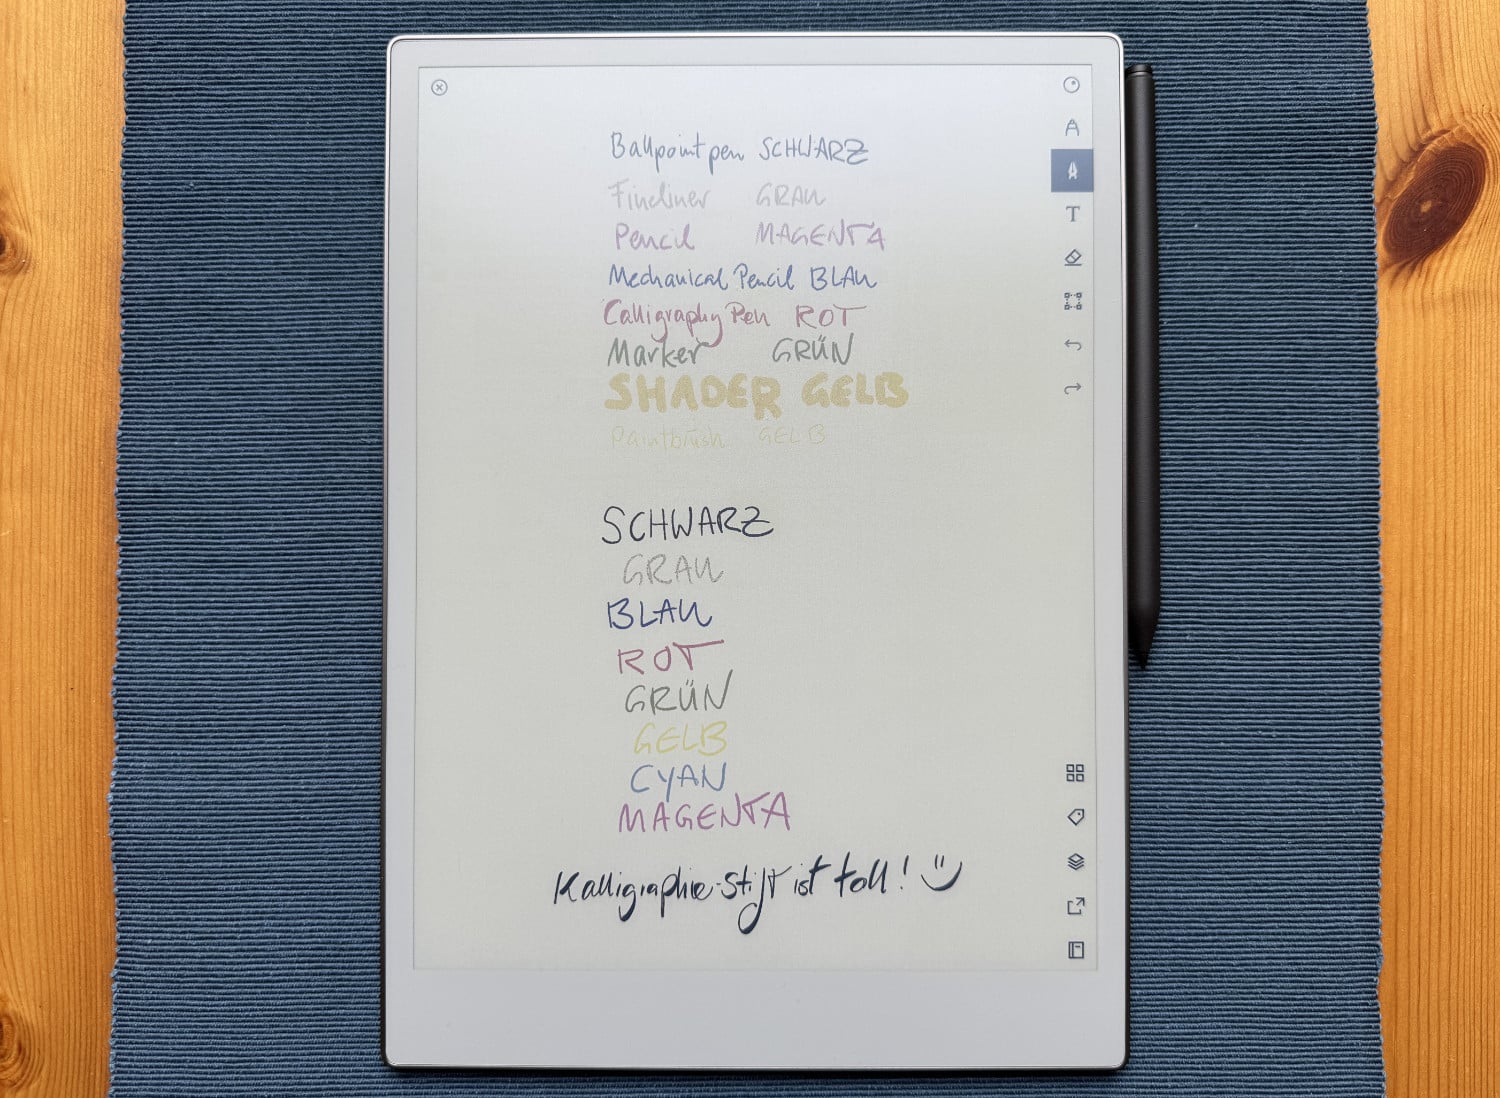 Ballpoint pen SCHWARZ
Fineliner GRAU
Pencil MAGENTA
Mechanical Pencil BLAU
Calligraphy Pen ROT
Marker GRÜN
SHADER GELB
Paintbrush GELB
SCHWARZ
GRAU
BLAU
ROT
GRÜN
GELB
CYAN
MAGENTA
Kalligraphie-Stift ist toll! :)